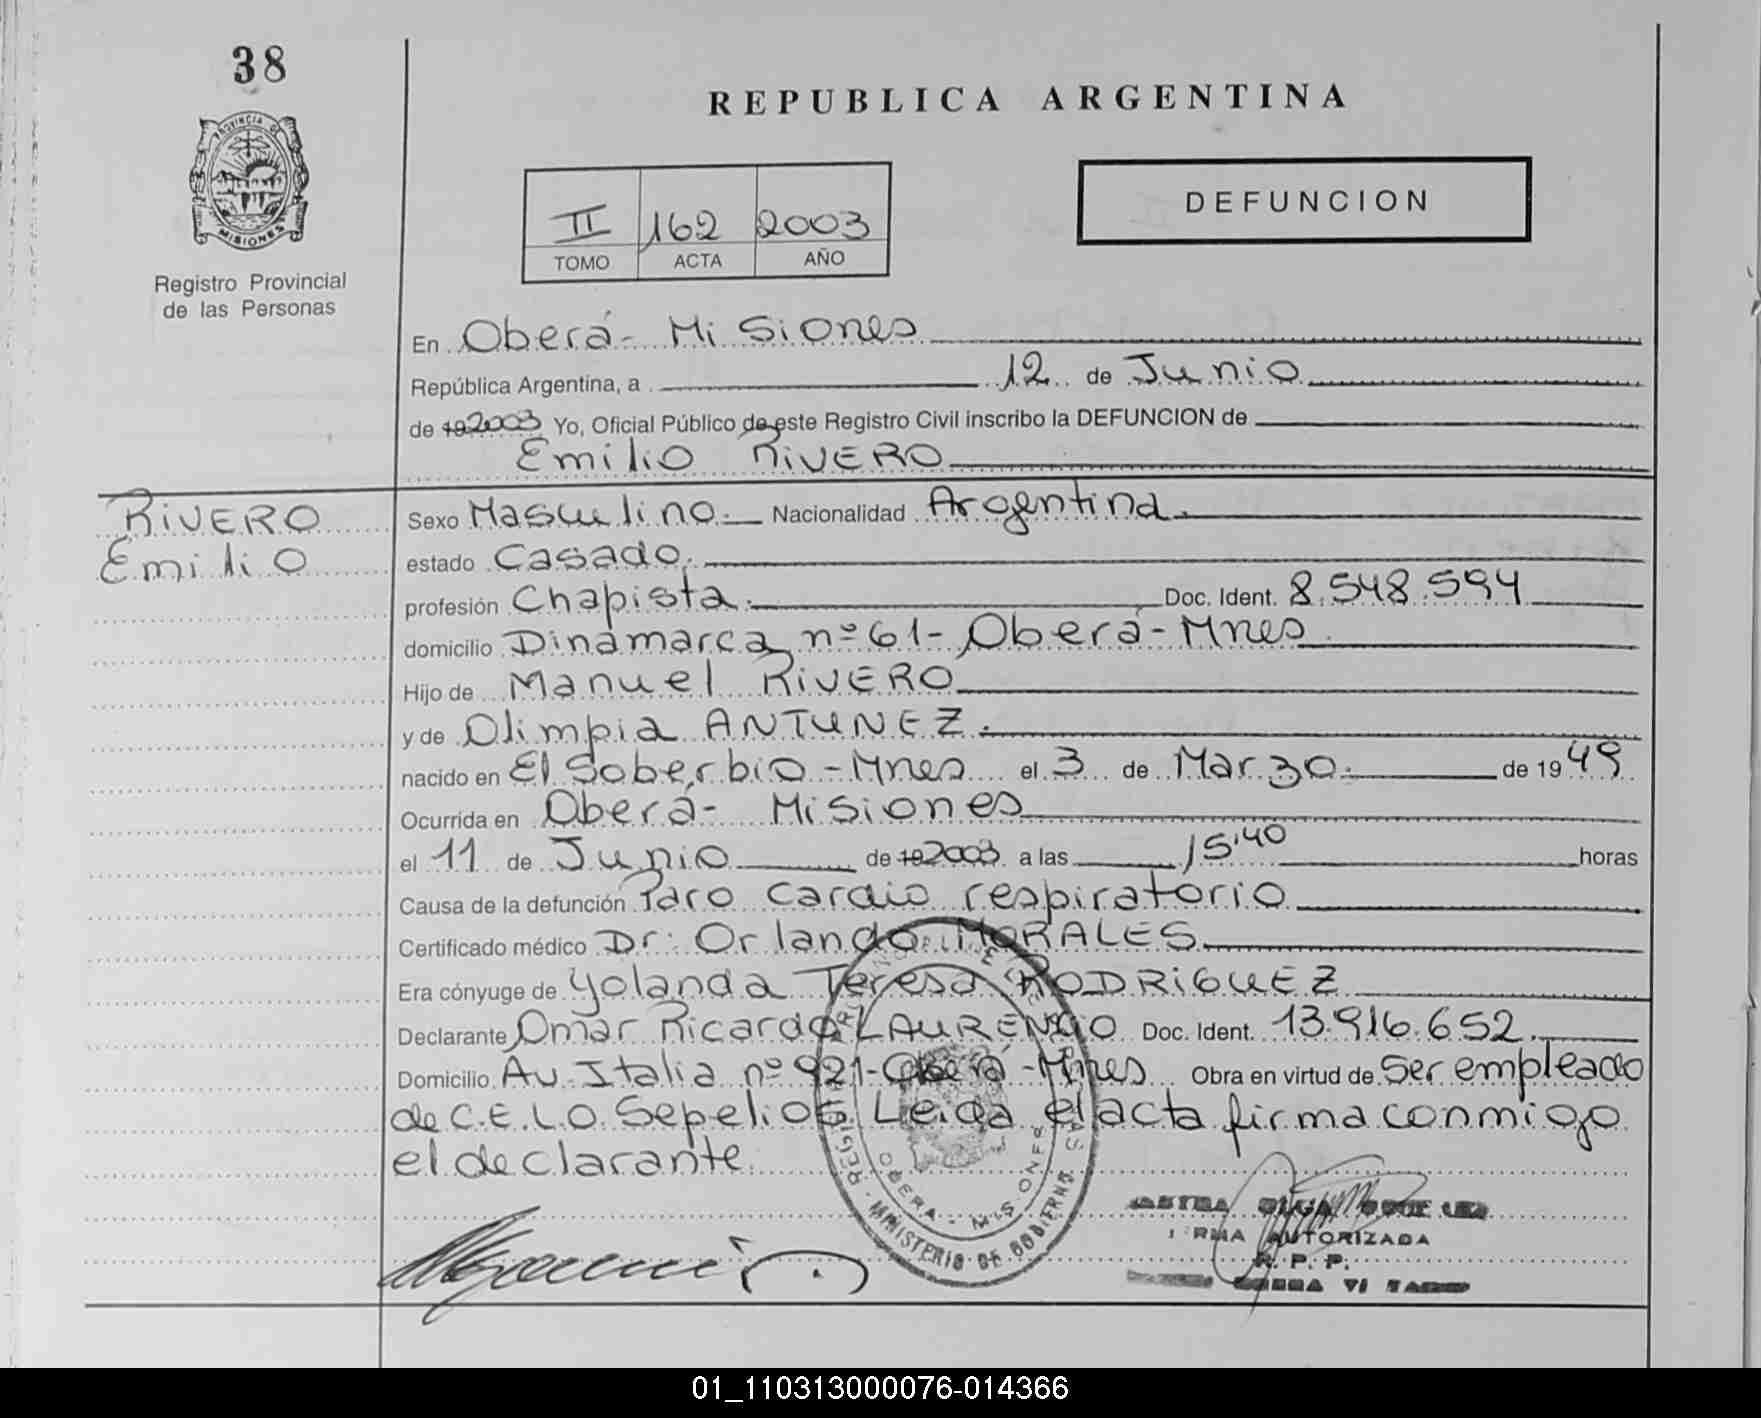 38
REPUBLICA ARGENTINA
PROVINCIA DE
MISIONES
Registro Provincial
de las Personas
II 162 2003
TOMO ACTA AÑO
DEFUNCION
En Oberá - Misiones
República Argentina, a 12 de Junio
de 19 2003 Yo, Oficial Público de este Registro Civil inscribo la DEFUNCION de
Emilio RIVERO
RIVERO
Emilio
Sexo Masculino. Nacionalidad Argentina.
estado Casado.
profesión Chapista. Doc. Ident. 8.548.594
domicilio Dinamarca nº 61 - Oberá - Mnes
Hijo de Manuel RIVERO
y de Olimpia ANTUNEZ.
nacido en El Soberbio - Mnes el 3 de Marzo. de 1949
Ocurrida en Oberá - Misiones
el 11 de Junio de 19 2003 a las 15:40 horas
Causa de la defunción Paro cardio respiratorio
Certificado médico Dr: Orlando MORALES
Era cónyuge de Yolanda Teresa RODRIGUEZ
Declarante Omar Ricardo LAURENCIO Doc. Ident. 13.916.652
Domicilio Av. Italia nº 921 - Oberá - Mnes Obra en virtud de Ser empleado
de C.E.L.O. Sepelios Leida el acta firma conmigo
el declarante
OBERA - MISIONES
MINISTERIO DE GOBIERNO
OLGA
AUTORIZADA
R. P. P.
01_110313000076-014366